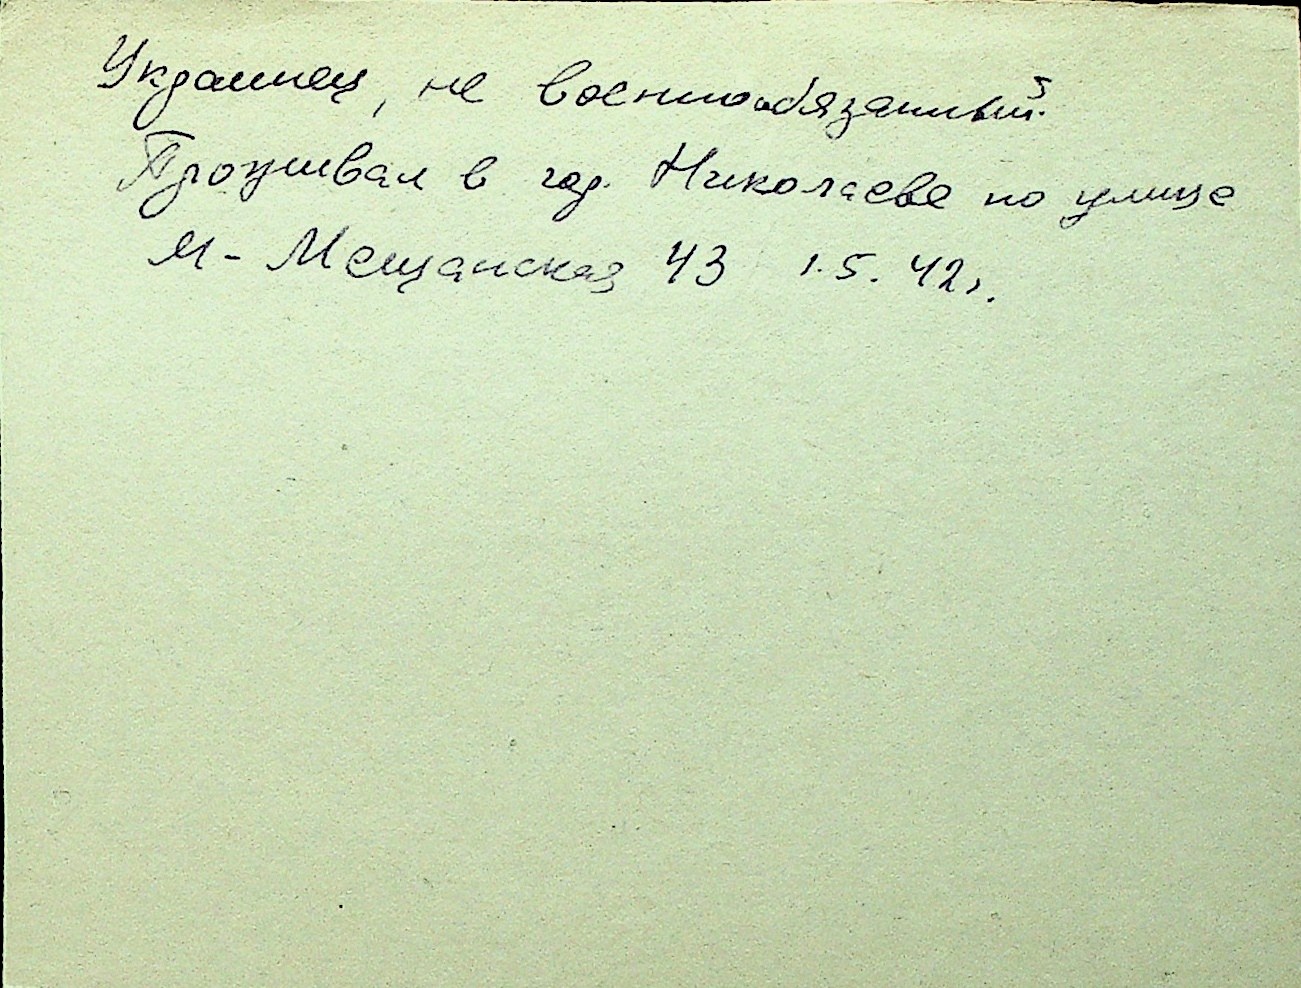 Украинец, не военнообязанный.
Проживал в гор. Николаеве по улице
М-Мещанская 43 1.5.42г.